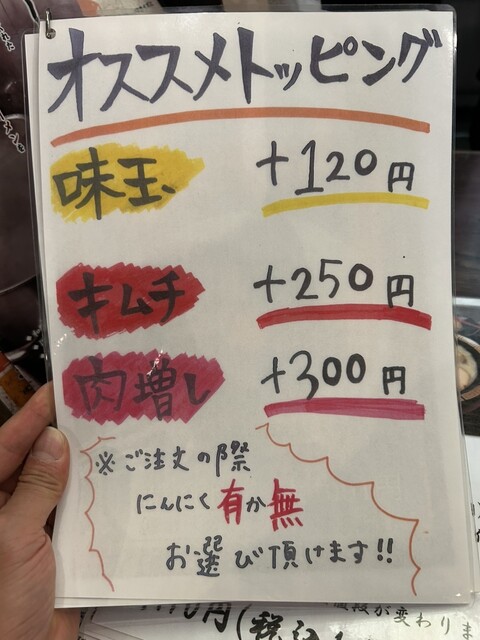 オススメトッピング
味玉
+120円
キムチ
+250円
肉増し
+300円
※ご注文の際
にんにく有か無
お選び頂けます!!
円(税込
が変わりま